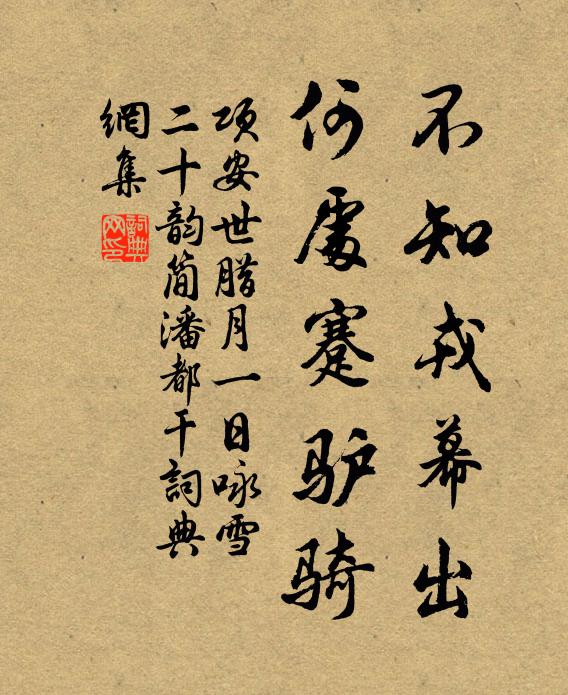 不知戎幕出
何處蹇驴骑
项安世腊月一日咏雪
二十韵简潘都干詞典
網集
詞典网印